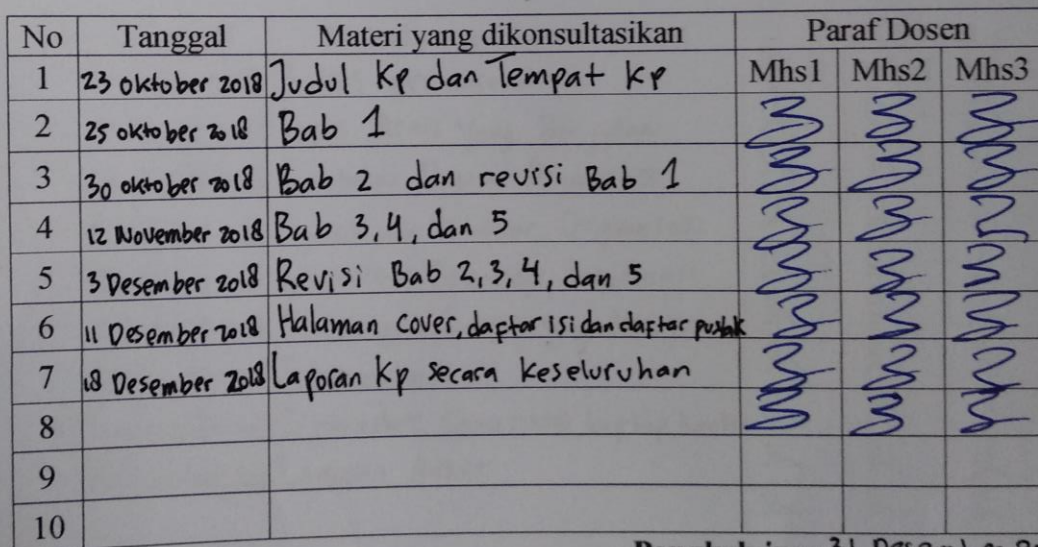 No Tanggal Materi yang dikonsultasikan Paraf Dosen
1 23 Oktober 2018 Judul KP dan Tempat KP Mhs1 Mhs2 Mhs3
2 25 Oktober 2018 Bab 1
3 30 Oktober 2018 Bab 2 dan revisi Bab 1
4 12 November 2018 Bab 3,4, dan 5
5 3 Desember 2018 Revisi Bab 2,3,4, dan 5
6 11 Desember 2018 Halaman cover, daftar isi dan daftar
7 18 Desember 2018 Laporan KP secara keseluruhan
8
9
10
31 Desember